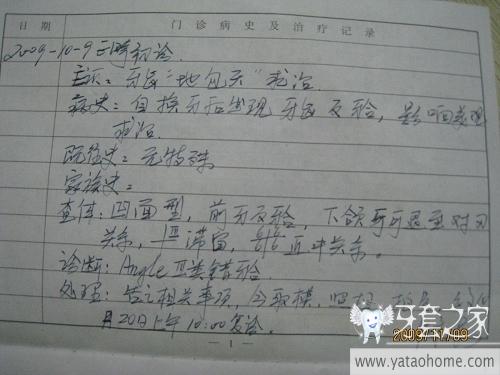 日期 门诊病史及治疗记录
2009-10-9 正畸初诊.
主诉: 牙齿"地包天"求治.
病史: 自换牙后出现牙齿反𬌗, 影响美观
求治.
既往史: 无特殊
家族史:
查体: 凹面型, 前牙反𬌗, 下颌可退至对刃
关系, 滞留, 近中关系.
诊断: Angle III类错𬌗
处理: 告之相关事项, 今取模, 照相,
月20日上午10:00复诊.
1
牙套之家
2009/11/09
www.yataohome.com